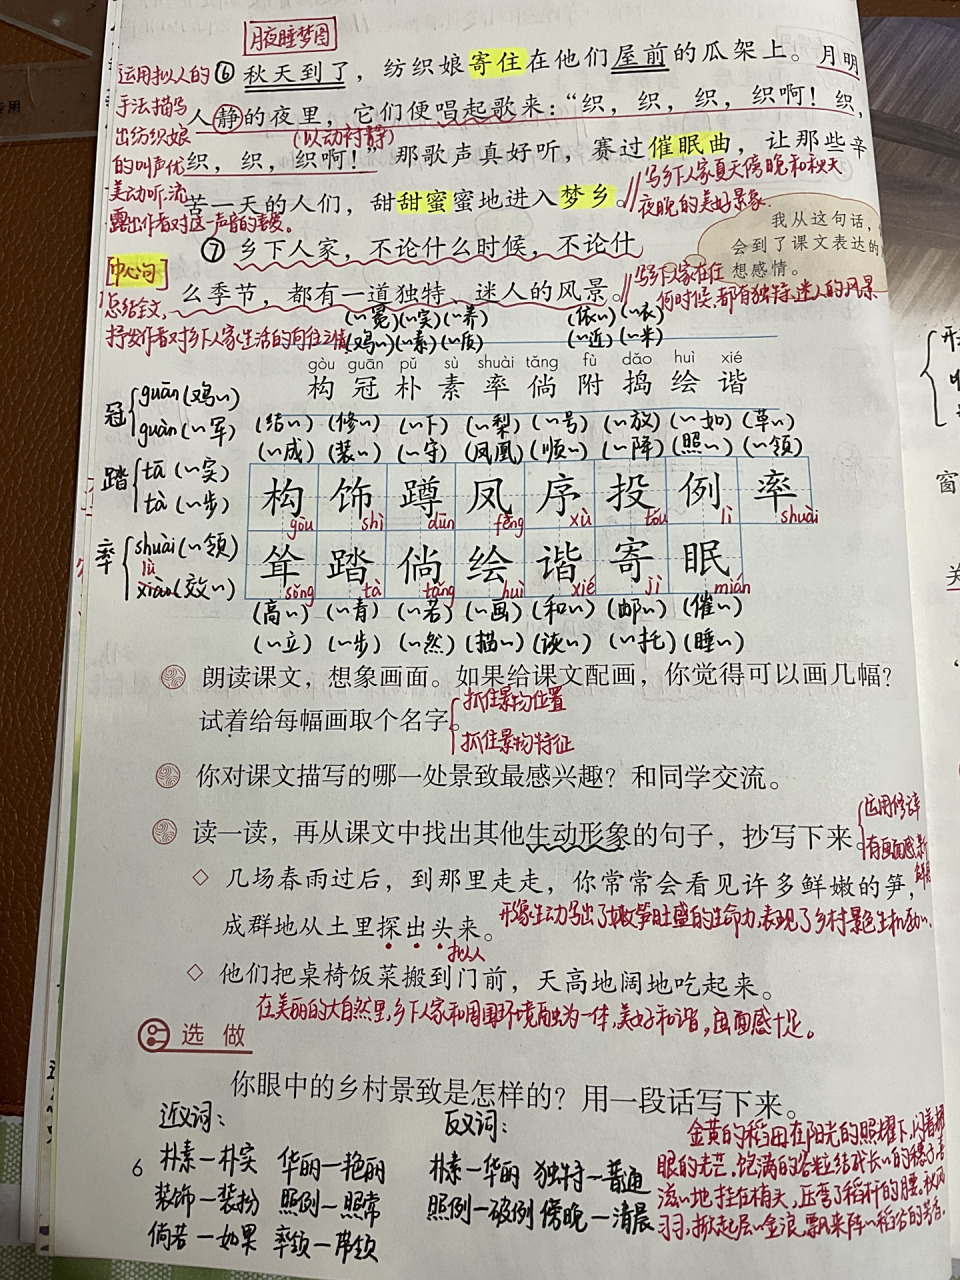 月夜睡梦图
运用拟人的
手法描写
出纺织娘
的叫声优
美动听,流
露出作者对这一声音的喜爱。
⑥ 秋天到了，纺织娘寄住在他们屋前的瓜架上。月明
人静的夜里，它们便唱起歌来：“织，织，织，织啊！织，
(以动衬静)
织，织，织啊！”那歌声真好听，赛过催眠曲，让那些辛
苦一天的人们，甜甜蜜蜜地进入梦乡。
写乡下人家夏天傍晚和秋天
夜晚的美好景象.
我从这句话，
会到了课文表达的
想感情。
⑦ 乡下人家，不论什么时候，不论什
么季节，都有一道独特、迷人的风景。
写乡下人家在任
何时候,都有独特、迷人的风景
[中心句]
总结全文,
抒发作者对乡下人家生活的向往之情
(~冕)(~实)(~养) (依~)(~衣)
(鸡~)(~素)(~质) (~近)(~米)
gòu guān pǔ sù shuài tǎng fù dǎo huì xié
构 冠 朴 素 率 倘 附 捣 绘 谐
冠 guān(鸡~)
guàn(~军)
踏 tā(~实)
tà(~步)
率 shuài(~领)
lǜ
xiào(效~)
(结~)(修~)(~下)(~梨)(~号)(~放)(~如)(草~)
(~成)(装~)(~守)(凤凰)(顺~)(~降)(照~)(~领)
构 饰 蹲 凤 序 投 例 率
gòu shì dūn fèng xù tóu lì shuài
耸 踏 倘 绘 谐 寄 眠
sǒng tà tǎng huì xié jì mián
(高~)(~青)(~若)(~画)(和~)(邮~)(催~)
(~立)(~步)(~然)(描~)(诙~)(~托)(睡~)
朗读课文，想象画面。如果给课文配画，你觉得可以画几幅？
试着给每幅画取个名字。
抓住景物位置
抓住景物特征
你对课文描写的哪一处景致最感兴趣？和同学交流。
读一读，再从课文中找出其他生动形象的句子，抄写下来。
运用修辞
有画面感
◇ 几场春雨过后，到那里走走，你常常会看见许多鲜嫩的笋，
成群地从土里探出头来。
拟人
形象生动写出了嫩笋旺盛的生命力,表现了乡村景色生机勃~.
◇ 他们把桌椅饭菜搬到门前，天高地阔地吃起来。
在美丽的大自然里,乡下人家和周围环境融为一体,美好和谐,画面感十足。
选做
你眼中的乡村景致是怎样的？用一段话写下来。
近义词：
朴素—朴实 华丽—艳丽
装饰—装扮 照例—照常
倘若—如果 率领—带领
反义词：
朴素—华丽 独特—普通
照例—破例 傍晚—清晨
金黄的稻田在阳光的照耀下,闪着耀
眼的光芒,饱满的谷粒结成长~的穗子,喜
滋~地挂在梢头,压弯了稻秆的腰。秋风
习习,掀起层~金浪,飘来阵~稻谷的芳香.
6